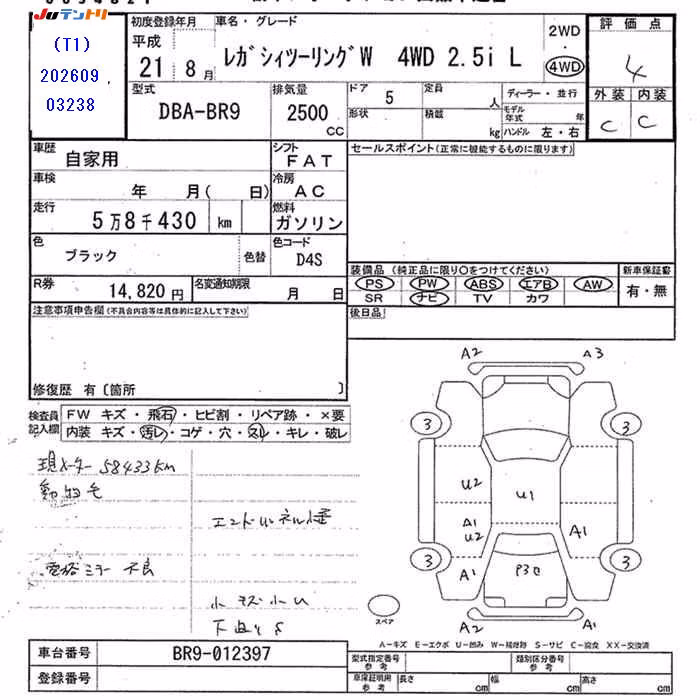 JUテントリ
(T1)
202609
03238
初度登録年月
平成
21 8月
車名・グレード
レガシィツーリングW 4WD 2.5i L
2WD
・
4WD
評価点
4
外装 内装
C C
型式
DBA-BR9
排気量
2500
CC
ドア
5
形状
定員
人
積載
kg
ディーラー・並行
モデル年式 年
ハンドル 左・右
車歴
自家用
シフト
FAT
車検
年 月( 日)
冷房
AC
走行
5万8千430 km
燃料
ガソリン
色
ブラック
色替
色コード
D4S
R券
14,820円
名変通知期限
月 日
セールスポイント(正常に機能するものに限ります)
装備品(純正品に限り○をつけてください)
PS PW ABS エアB AW
SR ナビ TV カワ
新車保証書
有・無
後日品
注意事項申告欄(不具合内容等は具体的に記入して下さい)
修復歴 有〔箇所 〕
検査員記入欄
FW キズ・飛石・ヒビ割・リペア跡・×要
内装 キズ・汚レ・コゲ・穴・スレ・キレ・破レ
現メーター 58433km
動物毛
ミラー 不良
A2 A3
3 3
U2 U1
A1
U2
A1
3 3
A1
A2 A1
スペア
A-キズ E-エクボ U-凹み W-補修跡 S-サビ C-腐食 XX-交換済
車台番号
BR9-012397
登録番号
型式指定番号
参考
類別区分番号
参考
車庫証明用
参考
長さ cm
幅 cm
高さ cm